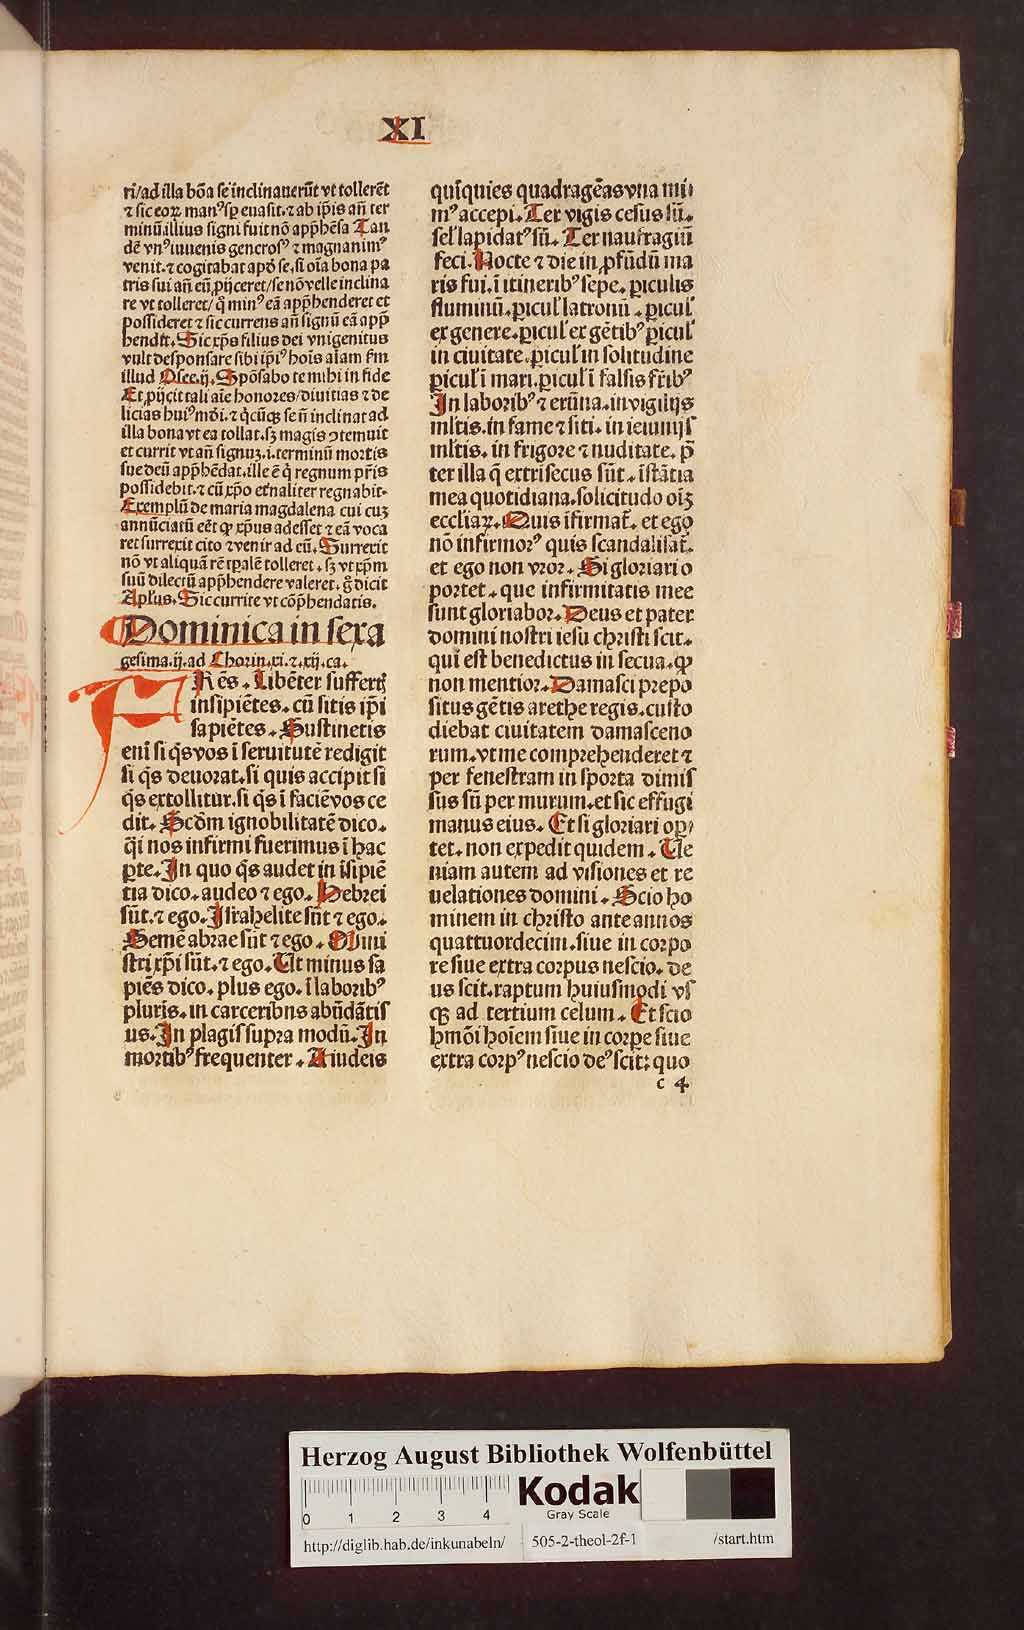 XI
ri/ad illa bōa se inclinauerūt vt tollerēt
⁊ sic eoꝝ manꝰ sꝑ euasit.⁊ ab ip̄is an̄ ter
minū illius signi fuit nō app̄hēsa Tan
dē vnꝰ iuuenis generosꝰ ⁊ magnanimꝰ
venit.⁊ cogitabat apđ se, si oīa bona pa
tris sui an̄ eū ꝓijceret/se nō velle inclina
re vt tolleret/ q̄ minꝰ eā app̄henderet et
possideret ⁊ sic currens an̄ signū eā app̄
hendit. Sic xp̄s filius dei vnigenitus
vult desponsare sibi ip̄iꝰ hoīs aīam fm̄
illud Osee.ij. Spōsabo te mihi in fide
Et ꝓijcit tali aīe honores/diuitias ⁊ de
licias huiꝰ mōi.⁊ q̄cūqꝫ se n̄ inclinat ad
illa bona vt ea tollat.sꝫ magis ↄtemnit
et currit vt an̄ signuꝫ.i.terminū mortis
sue deū app̄hēdat.ille ē q̄ regnum pr̄is
possidebit.⁊ cū xp̄o et̄naliter regnabit.
Exemplū de maria magdalena cui cuꝫ
annūciatū eēt ꝙ xp̄us adesset ⁊ eā voca
ret surrexit cito ⁊ venit ad eū. Surrexit
nō vt aliquā rē tp̄alē tolleret. sꝫ vt xp̄m
suū dilectū app̄hendere valeret.ḡ dicit
Apl̄us. Sic currite vt cōp̄hendatis.
Dominica in sexa
gesima.ij.ad Chorin.xi.⁊.xij.ca.
FRēs. Libēter suffertꝭ
insipiētes. cū sitis ip̄i
sapiētes. Sustinetis
enī si q̄s vos ī seruitutē redigit
si q̄s deuorat.si quis accipit si
q̄s extollitur.si q̄s ī faciē vos ce
dit. Scđm ignobilitatē dico.
q̄i nos infirmi fuerimus ī hac
ꝑte. In quo q̄s audet in īsipiē
tia dico.audeo ⁊ ego. Hebrei
sūt.⁊ ego. Israhelite sūt ⁊ ego.
Semē abrae sūt ⁊ ego. Mini
stri xp̄i sūt.⁊ ego. Ut minus sa
piēs dico. plus ego. ī laboribꝰ
pluris. in carceribus abūdātis
us. In plagis supra modū. In
mortibꝰ frequenter. A iudeis
quīquies quadragēas vna mi
mꝰ accepi. Ter v̄gis cesus sū.
sel̄ lapidatꝰ sū. Ter naufragiū
feci. Nocte ⁊ die in ꝓfūdū ma
ris fui.ī itineribꝰ sepe. ꝑiculis
fluminū. ꝑicul̄ latronū. ꝑicul̄
ex genere.ꝑicul̄ ex gētibꝰ ꝑicul̄
in ciuitate.ꝑicul̄ in solitudine
ꝑicul̄ ī mari.ꝑicul̄ ī falsis fr̄ibꝰ
In laboribꝰ ⁊ erūna.in vigilijs
ml̄tis.in fame ⁊ siti. in ieiunijs
ml̄tis. in frigore ⁊ nuditate. p̄
ter illa q̄ extrisecus sūt. īstātia
mea quotidiana.solicitudo oīꝫ
eccl̄iaꝝ. Quis īfirmat̄. et ego
nō infirmorꝰ quis scandalisat̄.
et ego non vror. Si gloriari o
portet. que infirmitatis mee
sunt gloriabor. Deus et pater
domini nostri iesu christi scit.
qui est benedictus in secua.ꝙ
non mentior. Damasci prepo
situs gētis arethe regis.custo
diebat ciuitatem damasceno
rum.vt me comprehenderet ⁊
per fenestram in sporta dimis
sus sū per murum.et sic effugi
manus eius. Et si gloriari opꝛ
tet. non expedit quidem. Ue
niam autem ad visiones et re
uelationes domini. Scio ho
minem in christo ante annos
quattuordecim.siue in corpo
re siue extra corpus nescio. de
us scit.raptum huiusmodi vs
qꝫ ad tertium celum. Et scio
hmōi hoīem siue in corpe siue
extra corpꝰ nescio deꝰ scit: quo
c 4
Herzog August Bibliothek Wolfenbüttel
0 1 2 3 4
Kodak
Gray Scale
http://diglib.hab.de/inkunabeln/ 505-2-theol-2f-1 /start.htm